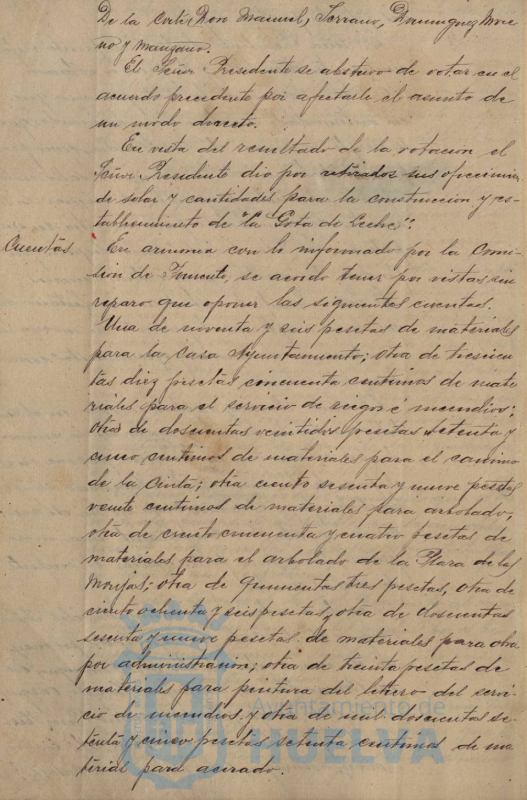 De la Corte, Don Manuel, Serrano, Dominguez More
no y Manzano.
El Señor Presidente se abstuvo de votar en el
acuerdo precedente por afectarle el asunto de
un modo directo.
En vista del resultado de la votacion el
Señor Presidente dio por retirados sus ofrecimien
de solar y cantidades para la construccion y es-
tablecimiento de "la Gota de Leche".
Cuentas.
En armonia con lo informado por la Comi-
sion de Fomento, se acordo tener por vistas sin
reparo que oponer las siguientes cuentas.
Una de noventa y seis pesetas de materiales
para la Casa Ayuntamiento; otra de trescien
tas diez pesetas cincuenta centimos de mate
riales para el servicio de riegos é incendios;
otra de doscientas veintidos pesetas setenta y
cinco centimos de materiales para el camino
de la Cinta; otra ciento sesenta y nueve pesetas
veinte centimos de materiales para arbolado;
otra de ciento cincuenta y cuatro pesetas de
materiales para el arbolado de la Plaza de las
Monjas; otra de quinientas tres pesetas, otra de
ciento ochenta y seis pesetas y otra de doscientas
sesenta y nueve pesetas de materiales para obra
por administracion; otra de treinta pesetas de
materiales para pintura del letrero del servi-
cio de incendios y otra de mil doscientas se-
tenta y cinco pesetas setenta centimos de ma
terial para acerado.
Ayuntamiento de
HUELVA